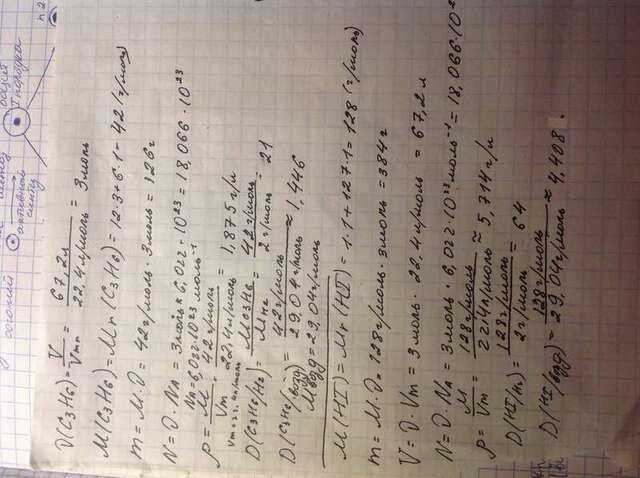 активном
синтез
общий
I порядка
ν(C₃H₆) = V/Vm = 67,2л/22,4л/моль = 3моль
M(C₃H₆) = Mr(C₃H₆) = 12·3+6·1 = 42 (г/моль)
m = M·ν = 42г/моль · 3моль = 126г
N = ν·Nₐ = 3моль · 6,022·10²³ = 18,066·10²³
Nₐ = 6,022·10²³ моль⁻¹
ρ = M/Vm = 42г/моль/22,4л/моль = 1,875г/л
Vm=22,4л/моль
D(C₃H₆/H₂) = MC₃H₆/MH₂ = 42г/моль/2г/моль = 21
D(C₃H₆/возд) = 42г/моль/29,04г/моль ≈ 1,446
Mвозд = 29,04г/моль
M(HI) = Mr(HI) = 1·1+127·1 = 128 (г/моль)
m = M·ν = 128г/моль · 3моль = 384г
V = ν·Vm = 3моль · 22,4л/моль = 67,2л
N = ν·Nₐ = 3моль · 6,022·10²³моль⁻¹ = 18,066·10²
ρ = M/Vm = 128г/моль/22,4л/моль ≈ 5,714г/л
D(HI/H₂) = 128г/моль/2г/моль = 64
D(HI/возд) = 128г/моль/29,04г/моль ≈ 4,408.